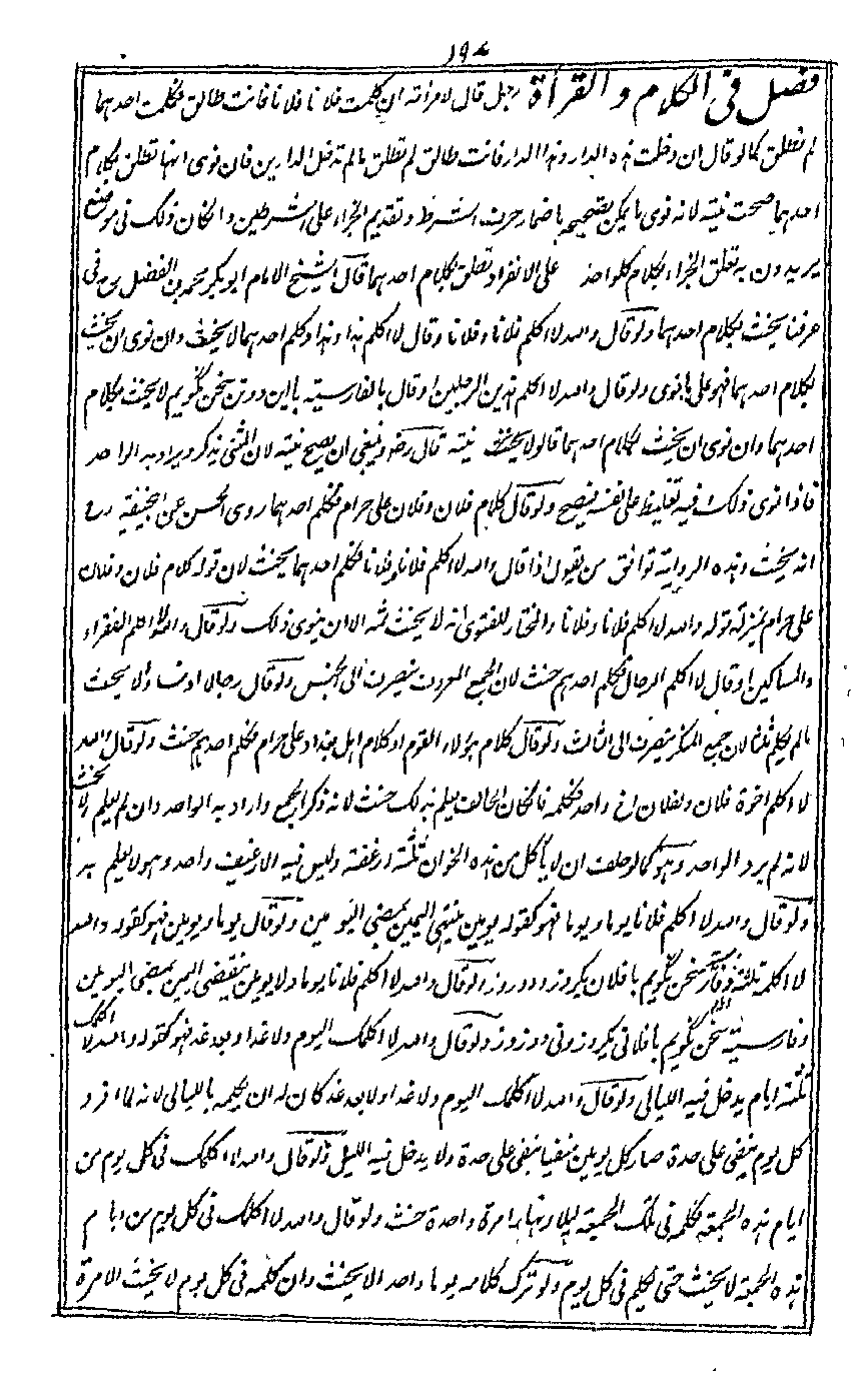 ١٩٤
فصل فى الكلام والقرأة رجل قال لامرأته ان كلمت فلانا فلانا فانت طالق فكلمت احدهما
لم تطلق كما لو قال ان دخلت هذه الدار وهذا الدار فانت طالق لم تطلق ما لم تدخل الدارين فان نوى انها تطلق بكلام
احدهما صحت نيته لانه نوى ما يمكن تصحيحه باضمار حرف الشرط وتقديم الجزاء على الشرطين وان كان ذلك فى موضع
يريدون به تعلق الجزاء بكلام كل واحد على الانفراد تطلق بكلام احدهما قال الشيخ الامام ابو بكر محمد بن الفضل رح فى
عرفنا يحنث بكلام احدهما ولو قال والله لا اكلم فلانا وفلانا وقال لا اكلم هذا وهذا وكلم احدهما لا يحنث وان نوى ان يحنث
بكلام احدهما فهو على ما نوى ولو قال والله لا اكلم هذين الرجلين او قال بالفارسية با اين دو تن سخن نگويم لا يحنث بكلام
احدهما وان نوى ان يحنث بكلام احدهما قالوا لا يحنث نيته قال رضه وينبغى ان يصح نيته لان المثنى يذكر ويراد به الواحد
فاذا نوى ذلك وفيه تغليظ على نفسه فيصح ولو قال كلام فلان وفلان على حرام فكلم احدهما روى الحسن عن ابيحنيفة رح
انه يحنث وهذه الرواية توافق من يقول اذا قال والله لا اكلم فلانا وفلانا فكلم احدهما يحنث لان قوله كلام فلان وفلان
على حرام بمنزلة قوله والله لا اكلم فلانا وفلانا والمختار للفتوى انه لا يحنث ثمه الا ان ينوى ذلك ولو قال والله لا اكلم الفقراء
والمساكين او قال لا اكلم الرجال فكلم احدهم حنث لان الجمع المعروف ينصرف الى الجنس ولو قال رجالا او نساء لا يحنث
ما لم يكلم ثلثا لان جمع المنكر ينصرف الى الثالث ولو قال كلام هؤلاء القوم او كلام اهل بغداد على حرام فكلم احدهم حنث ولو قال والله
لا اكلم اخوة فلان ولفلان اخ واحد فكلمه فان كان الحالف يعلم بذلك حنث لانه ذكر الجمع واراد به الواحد وان لم يعلم لا يحنث
لانه لم يرد الواحد وهو كما لو حلف ان لا يأكل من هذه الخوان ثلثة ارغفة وليس فيه الا رغيف واحد وهو لا يعلم به
ولو قال والله لا اكلم فلانا يوما ويوما فهو كقوله يومين ينتهى اليمين بمضى اليومين ولو قال يوما ويومين فهو كقوله والله
لا اكلمه ثلثة سخن نگويم با فلان يكروز ودو روز ولو قال والله لا اكلم فلانا يوما ولا يومين ينقضى اليمين بمضى اليومين
وفارسيته سخن نگويم با فلان نى يكروز ونى دو روز ولو قال والله لا اكلمك اليوم ولا غدا وبعد غد فهو كقوله والله لا اكلمك
ثلثة ايام يدخل فيه الليالى ولو قال والله لا اكلمك اليوم ولا غدا ولا بعد غد كان له ان يكلمه بالليالى لانه لما افرد
كل يوم بنفى على حدة صار كل يومين منفيا بنفى على حدة ولا يدخل فيه الليل ولو قال والله لا اكلمك فى كل يوم من
ايام هذه الجمعة فكلمه فى تلك الجمعة ليلا ونهارا مرة واحدة حنث ولو قال والله لا اكلمك فى كل يوم من ايام
هذه الجمعة لا يحنث حتى يكلمه فى كل يوم ولو ترك كلامه يوما واحدا لا يحنث وان كلمه فى كل يوم لا يحنث الا مرة